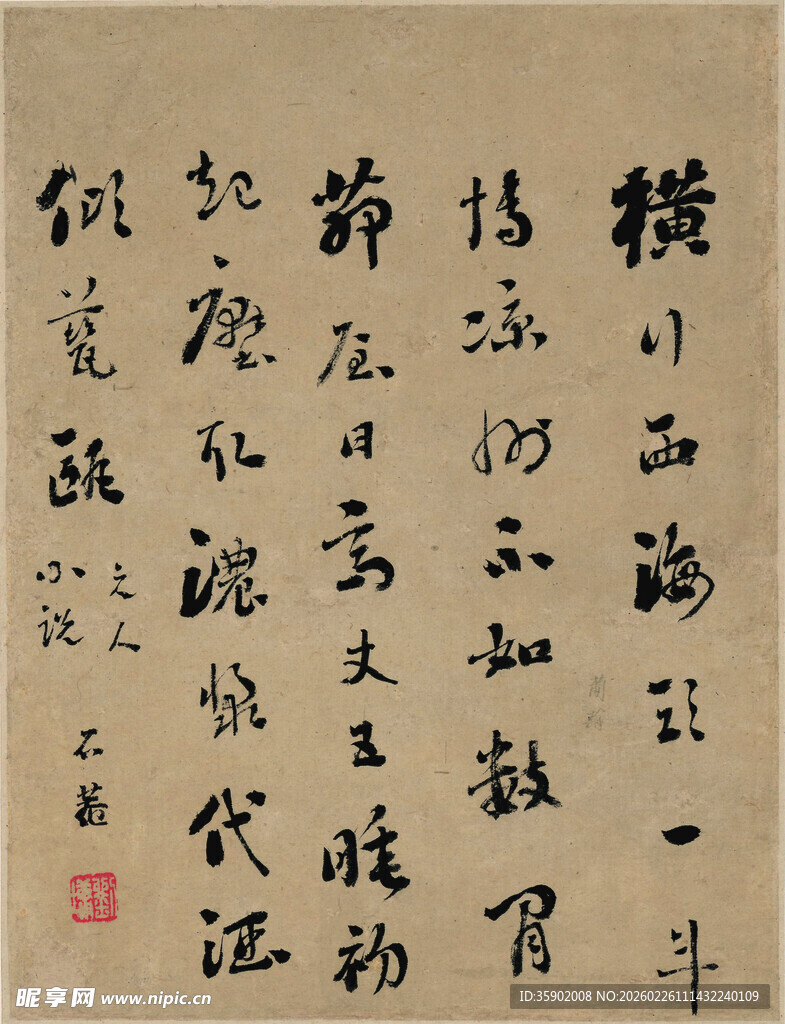 横行西海頭一斗
博凉州不如數間
茆屋日高丈五睡初
起壓取濃漿代酒
傾甕
元人
小説
石菴
昵享网 www.nipic.cn
ID:35902008 NO:20260226111432240109